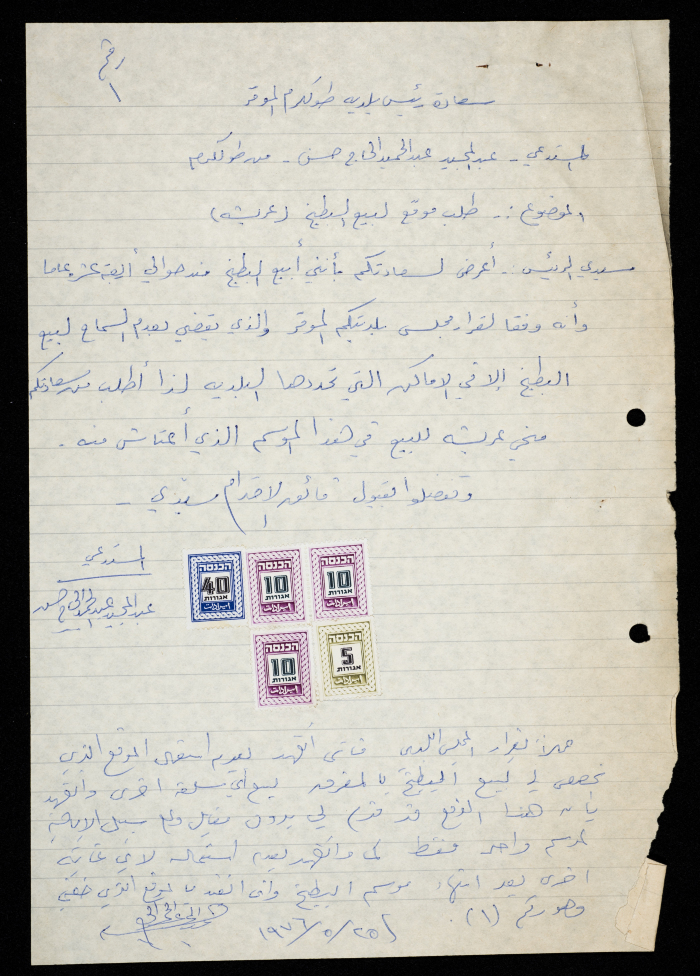 رقم
١
سعادة رئيس بلديه طولكرم الموقر
المستدعي - عبد المجيد عبد الحميد الحاج حسن - من طولكرم
الموضوع :- طلب موقع لبيع البطيخ (عريشه)
سيدي الرئيس :- أعرض لسعادتكم بأنني أبيع البطيخ منذ حوالي أربعة عشر عاما
وأنه وفقا لقرار مجلس بلديتكم الموقر والذي يقضي بعدم السماح لبيع
البطيخ إلا في الاماكن التي تحددها البلديه لذا أطلب من سعادتكم
منحي عريشه للبيع في هذا الموسم الذي أعتاش منه .
وتفضلوا بقبول فائق الاحترام سيدي -
المستدعي
عبد المجيد عبد الحميد الحاج حسن
הכנסה
40
אגורות
ايرادات
הכנסה
10
אגורות
ايرادات
הכנסה
10
אגורות
ايرادات
הכנסה
10
אגורות
ايرادات
הכנסה
5
אגורות
ايرادات
بقرار المجلس البلدي فانني أتعهد بعدم استعمال الموقع الذي
خصص لي لبيع البطيخ بالمفرق لبيع أي سلعة اخرى وأتعهد
بأن هذا الموقع قد قدم لي بدون مقابل وعلى سبيل الاباحة
لموسم واحد فقط كما وأتعهد بعدم استعماله لاي غاية
اخرى بعد انتهاء موسم البطيخ وأن أتقيد بالموقع الذي
(١).
١٩٧٦/٥/٢٥